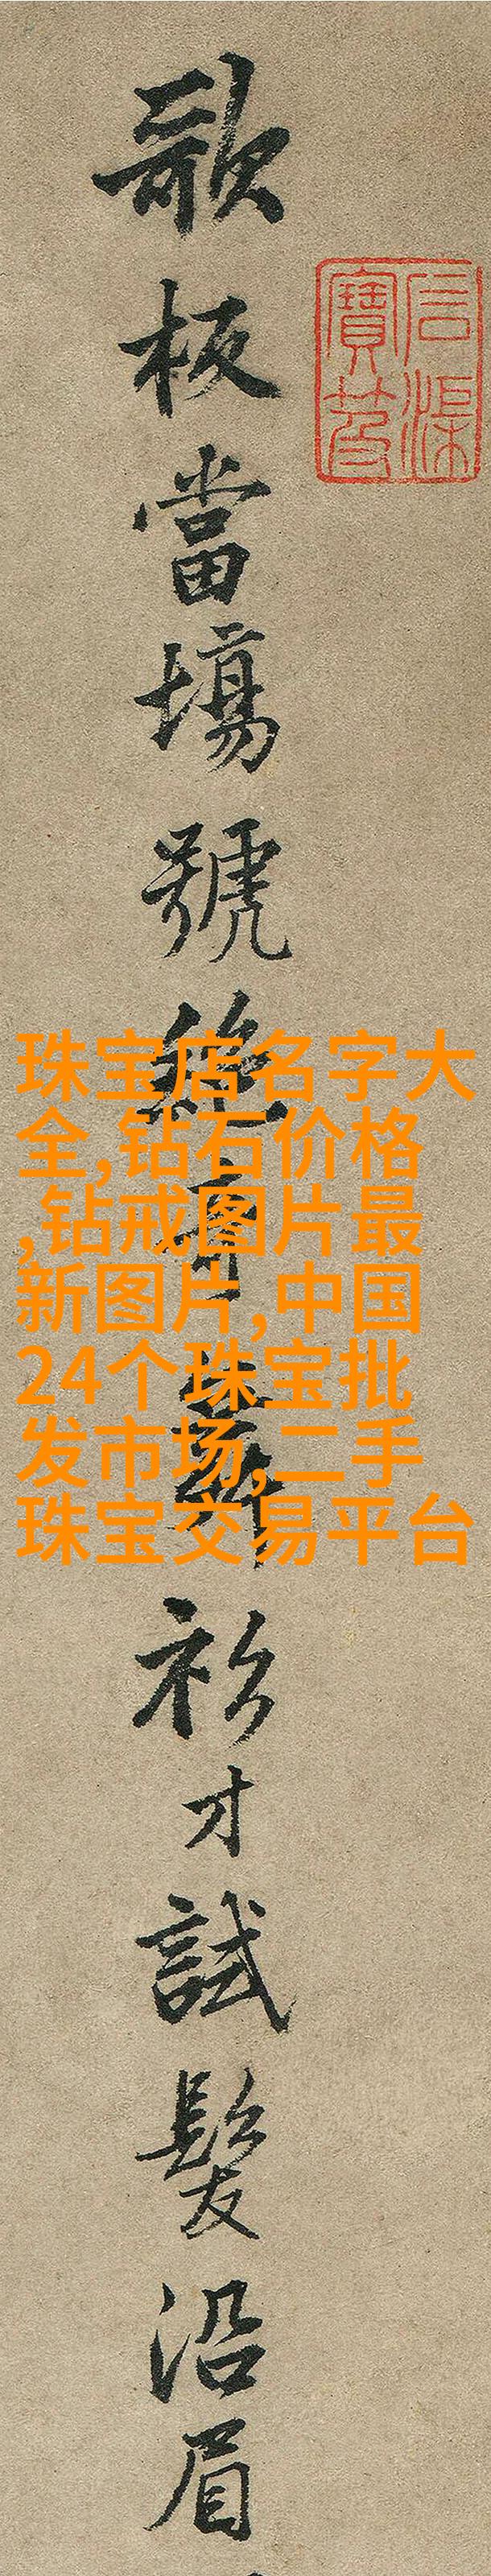 歌板當場號絕奇舞衫才試髮沿眉
石渠
寶笈
珠宝店名字大
全,钻石价格
,钻戒图片最
新图片,中国
24个珠宝批
发市场,二手
珠宝交易平台